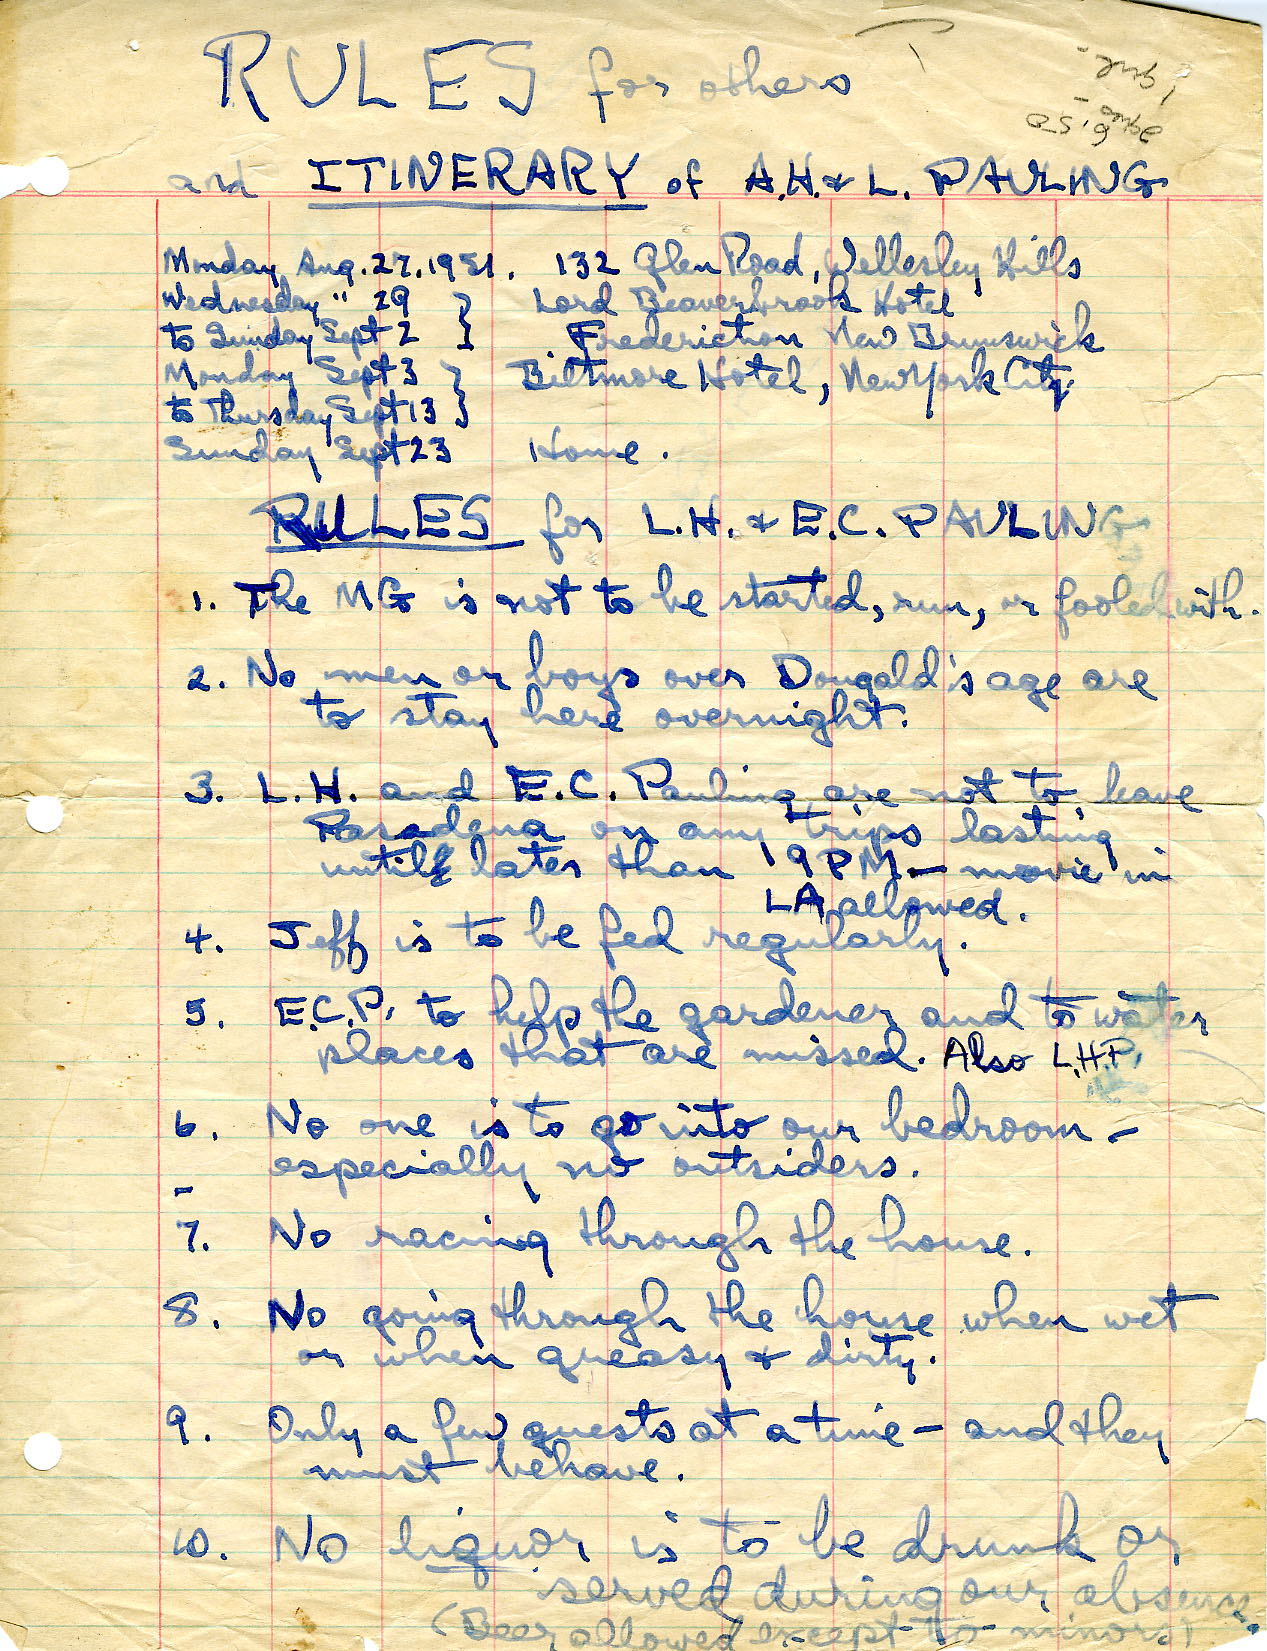 RULES for others
and ITINERARY of A.H. & L. PAULING
Monday Aug. 27, 1951. 132 Glen Road, Wellesley Hills
Wednesday " 29 } Lord Beaverbrook Hotel
to Sunday Sept 2 } Fredericton New Brunswick
Monday Sept 3 } Biltmore Hotel, New York City.
to Thursday Sept 13 }
Sunday Sept 23 Home.
RULES for L.H. & E.C. PAULING
1. The MG is not to be started, run, or fooled with.
2. No men or boys over Dougald's age are
to stay here overnight.
3. L.H. and E.C. Pauling are not to leave
Pasadena on any trips lasting
until later than 9 PM – movie in
LA allowed.
4. Jeff is to be fed regularly.
5. E.C.P. to help the gardener and to water
places that are missed. Also L.H.P.
6. No one is to go into our bedroom –
especially no outsiders.
7. No racing through the house.
8. No going through the house when wet
or when greasy & dirty.
9. Only a few guests at a time – and they
must behave.
10. No liquor is to be drunk or
served during our absence.
(Beer allowed except to minors)